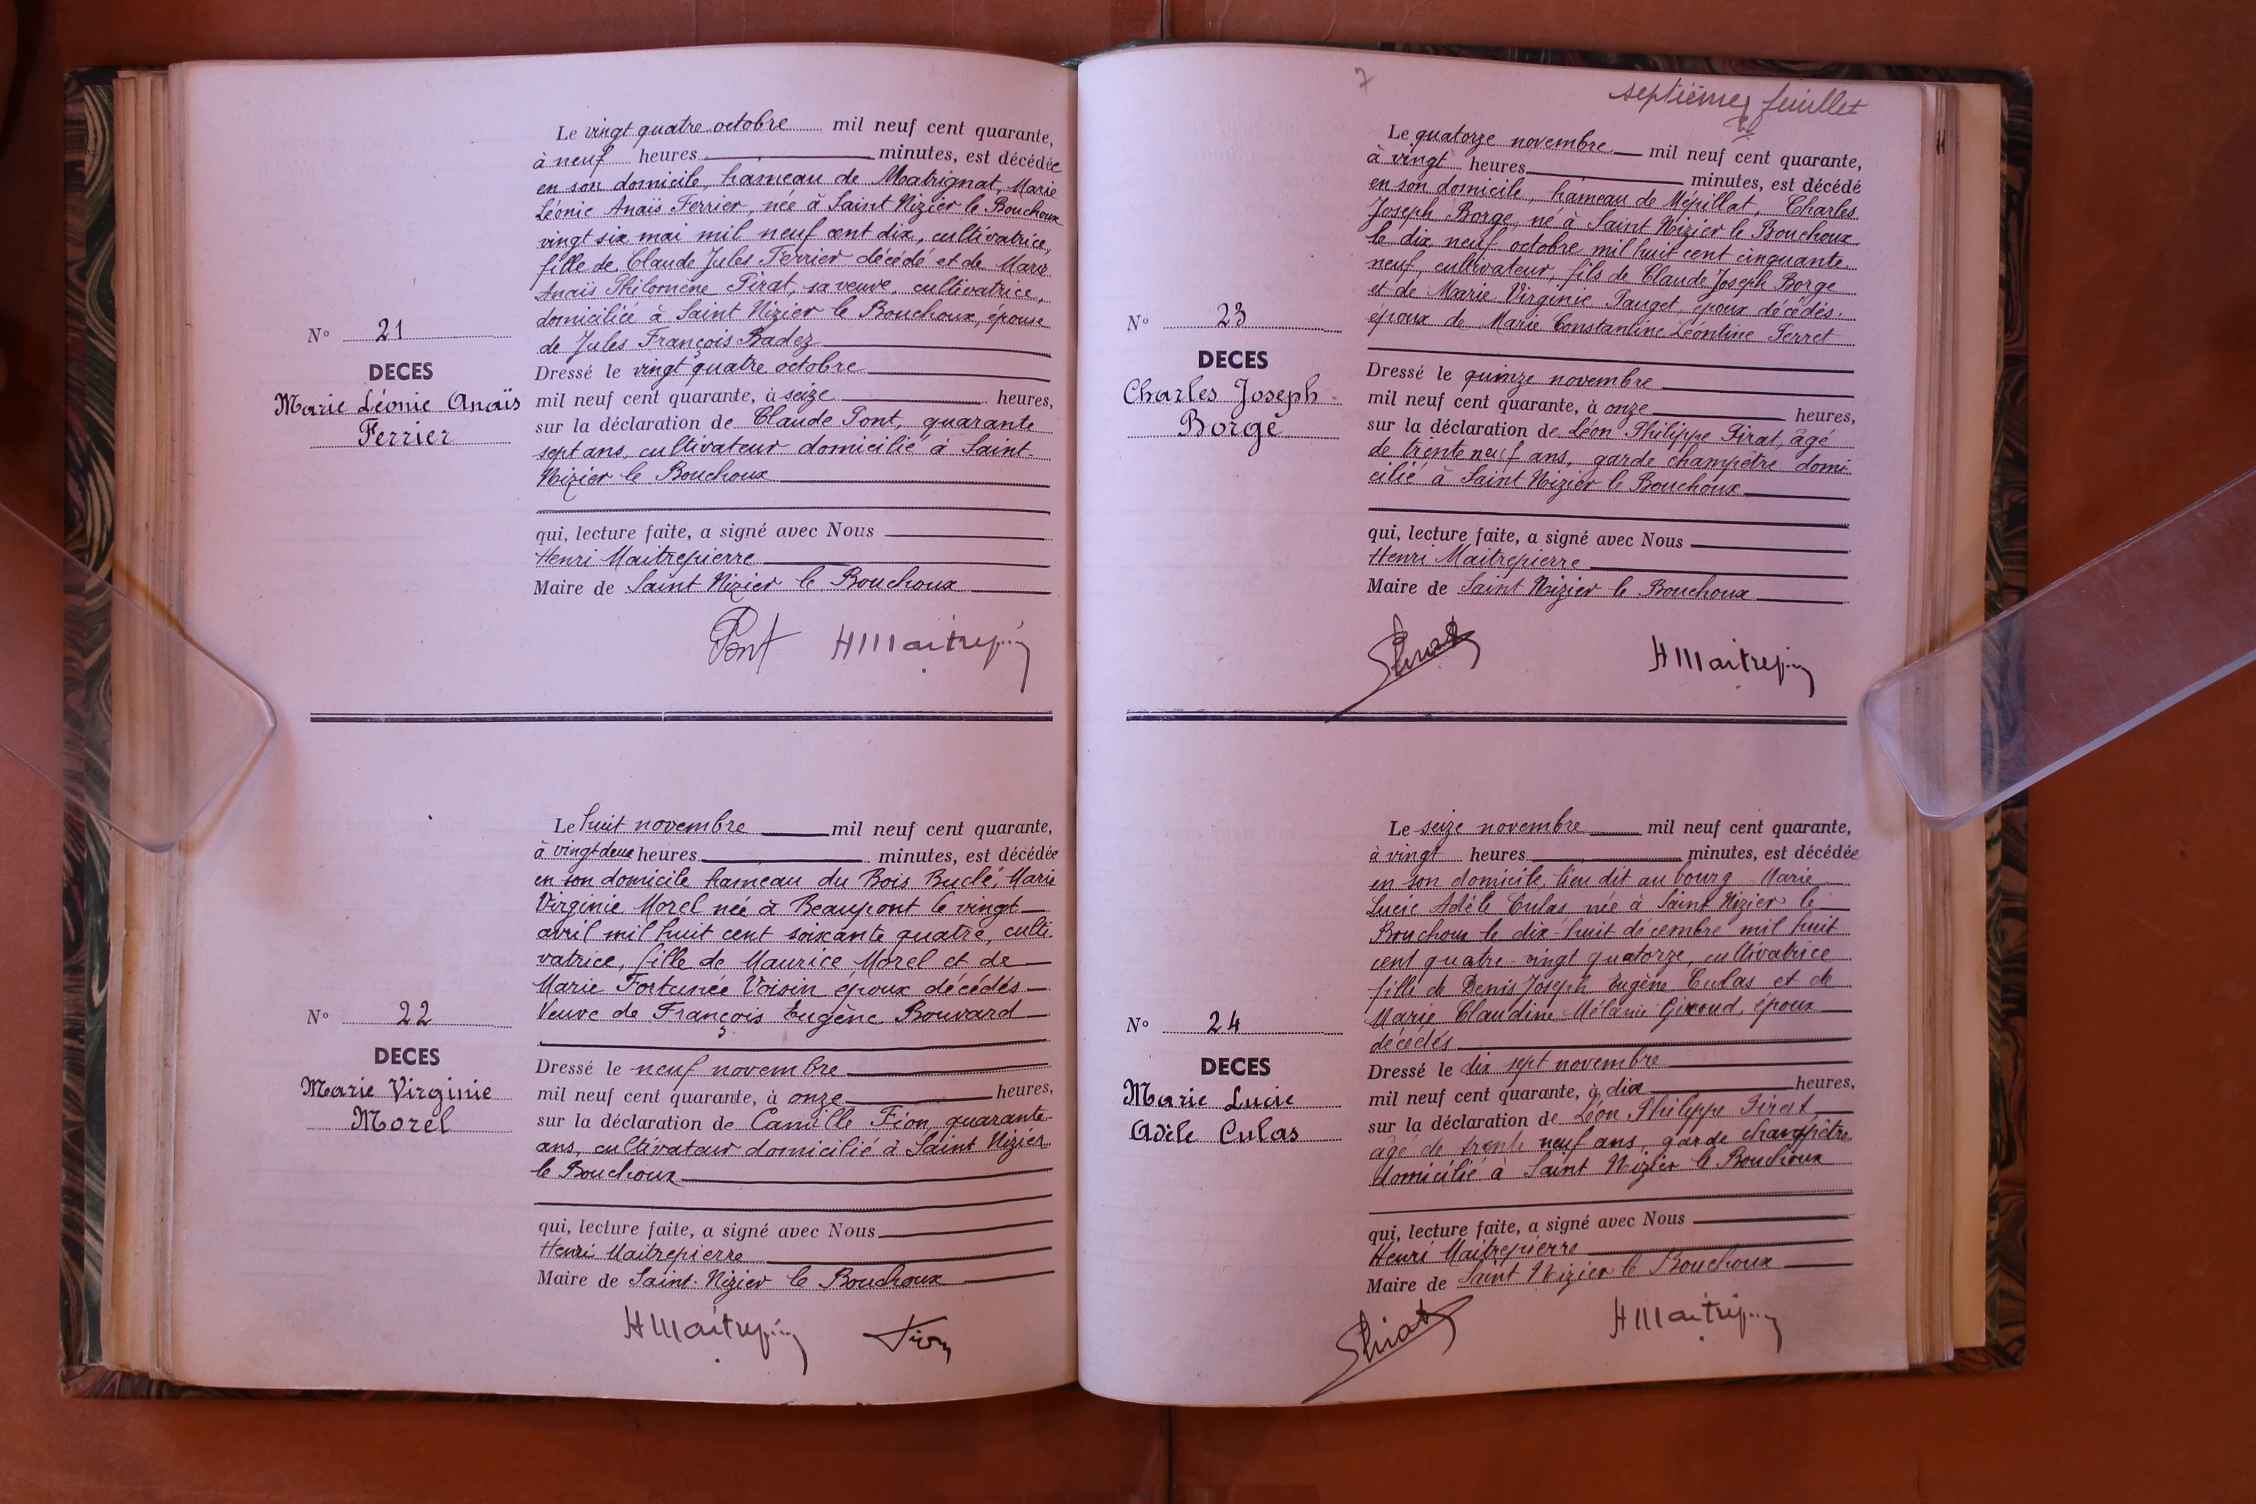 Le vingt quatre octobre mil neuf cent quarante,
à neuf heures minutes, est décédée
en son domicile, hameau de Matrignat, Marie
Léonie Anaïs Ferrier, née à Saint Nizier le Bouchoux
vingt six mai mil neuf cent dix, cultivatrice,
fille de Claude Jules Ferrier décédé et de Marie
Anaïs Philomène Pirat, sa veuve, cultivatrice,
domiciliée à Saint Nizier le Bouchoux, épouse
de Jules François Radez
N° 21
DECES
Marie Léonie Anaïs
Ferrier
Dressé le vingt quatre octobre
mil neuf cent quarante, à seize heures,
sur la déclaration de Claude Pont, quarante
sept ans, cultivateur domicilié à Saint-
Nizier le Bouchoux
qui, lecture faite, a signé avec Nous
Henri Maitrepierre
Maire de Saint Nizier le Bouchoux
Pont HMaitrepierre
Le huit novembre mil neuf cent quarante,
à vingt deux heures minutes, est décédée
en son domicile hameau du Bois Buclé, Marie
Virginie Morel née à Beaupont le vingt
avril mil huit cent soixante quatre, culti-
vatrice, fille de Maurice Morel et de
Marie Fortunée Voisin époux décédés
Veuve de François Eugène Bouvard
N° 22
DECES
Marie Virginie
Morel
Dressé le neuf novembre
mil neuf cent quarante, à onze heures,
sur la déclaration de Camille Fion, quarante
ans, cultivateur domicilié à Saint Nizier
le Bouchoux
qui, lecture faite, a signé avec Nous
Henri Maitrepierre
Maire de Saint-Nizier le Bouchoux
HMaitrepierre Fion
7
septième feuillet
Le quatorze novembre mil neuf cent quarante,
à vingt heures minutes, est décédé
en son domicile, hameau de Mépillat, Charles
Joseph Borge, né à Saint Nizier le Bouchoux
le dix neuf octobre mil huit cent cinquante
neuf, cultivateur, fils de Claude Joseph Borge
et de Marie Virginie Pauget, époux décédés.
époux de Marie Constantine Léontine Perret
N° 23
DECES
Charles Joseph
Borge
Dressé le quinze novembre
mil neuf cent quarante, à onze heures,
sur la déclaration de Léon Philippe Pirat, âgé
de trente neuf ans, garde champêtre domi-
cilié à Saint Nizier le Bouchoux
qui, lecture faite, a signé avec Nous
Henri Maitrepierre
Maire de Saint Nizier le Bouchoux
Pirat HMaitrepierre
Le seize novembre mil neuf cent quarante,
à vingt heures minutes, est décédée
en son domicile, lieu dit au bourg Marie
Lucie Adèle Culas née à Saint Nizier le
Bouchoux le dix-huit décembre mil huit
cent quatre-vingt quatorze, cultivatrice
fille de Denis Joseph Eugène Culas et de
Marie Claudine Mélanie Giroud, époux
décédés
N° 24
DECES
Marie Lucie
Adèle Culas
Dressé le dix sept novembre
mil neuf cent quarante, à dix heures,
sur la déclaration de Léon Philippe Pirat,
âgé de trente neuf ans, garde champêtre
domicilié à Saint Nizier le Bouchoux
qui, lecture faite, a signé avec Nous
Henri Maitrepierre
Maire de Saint Nizier le Bouchoux
Pirat HMaitrepierre